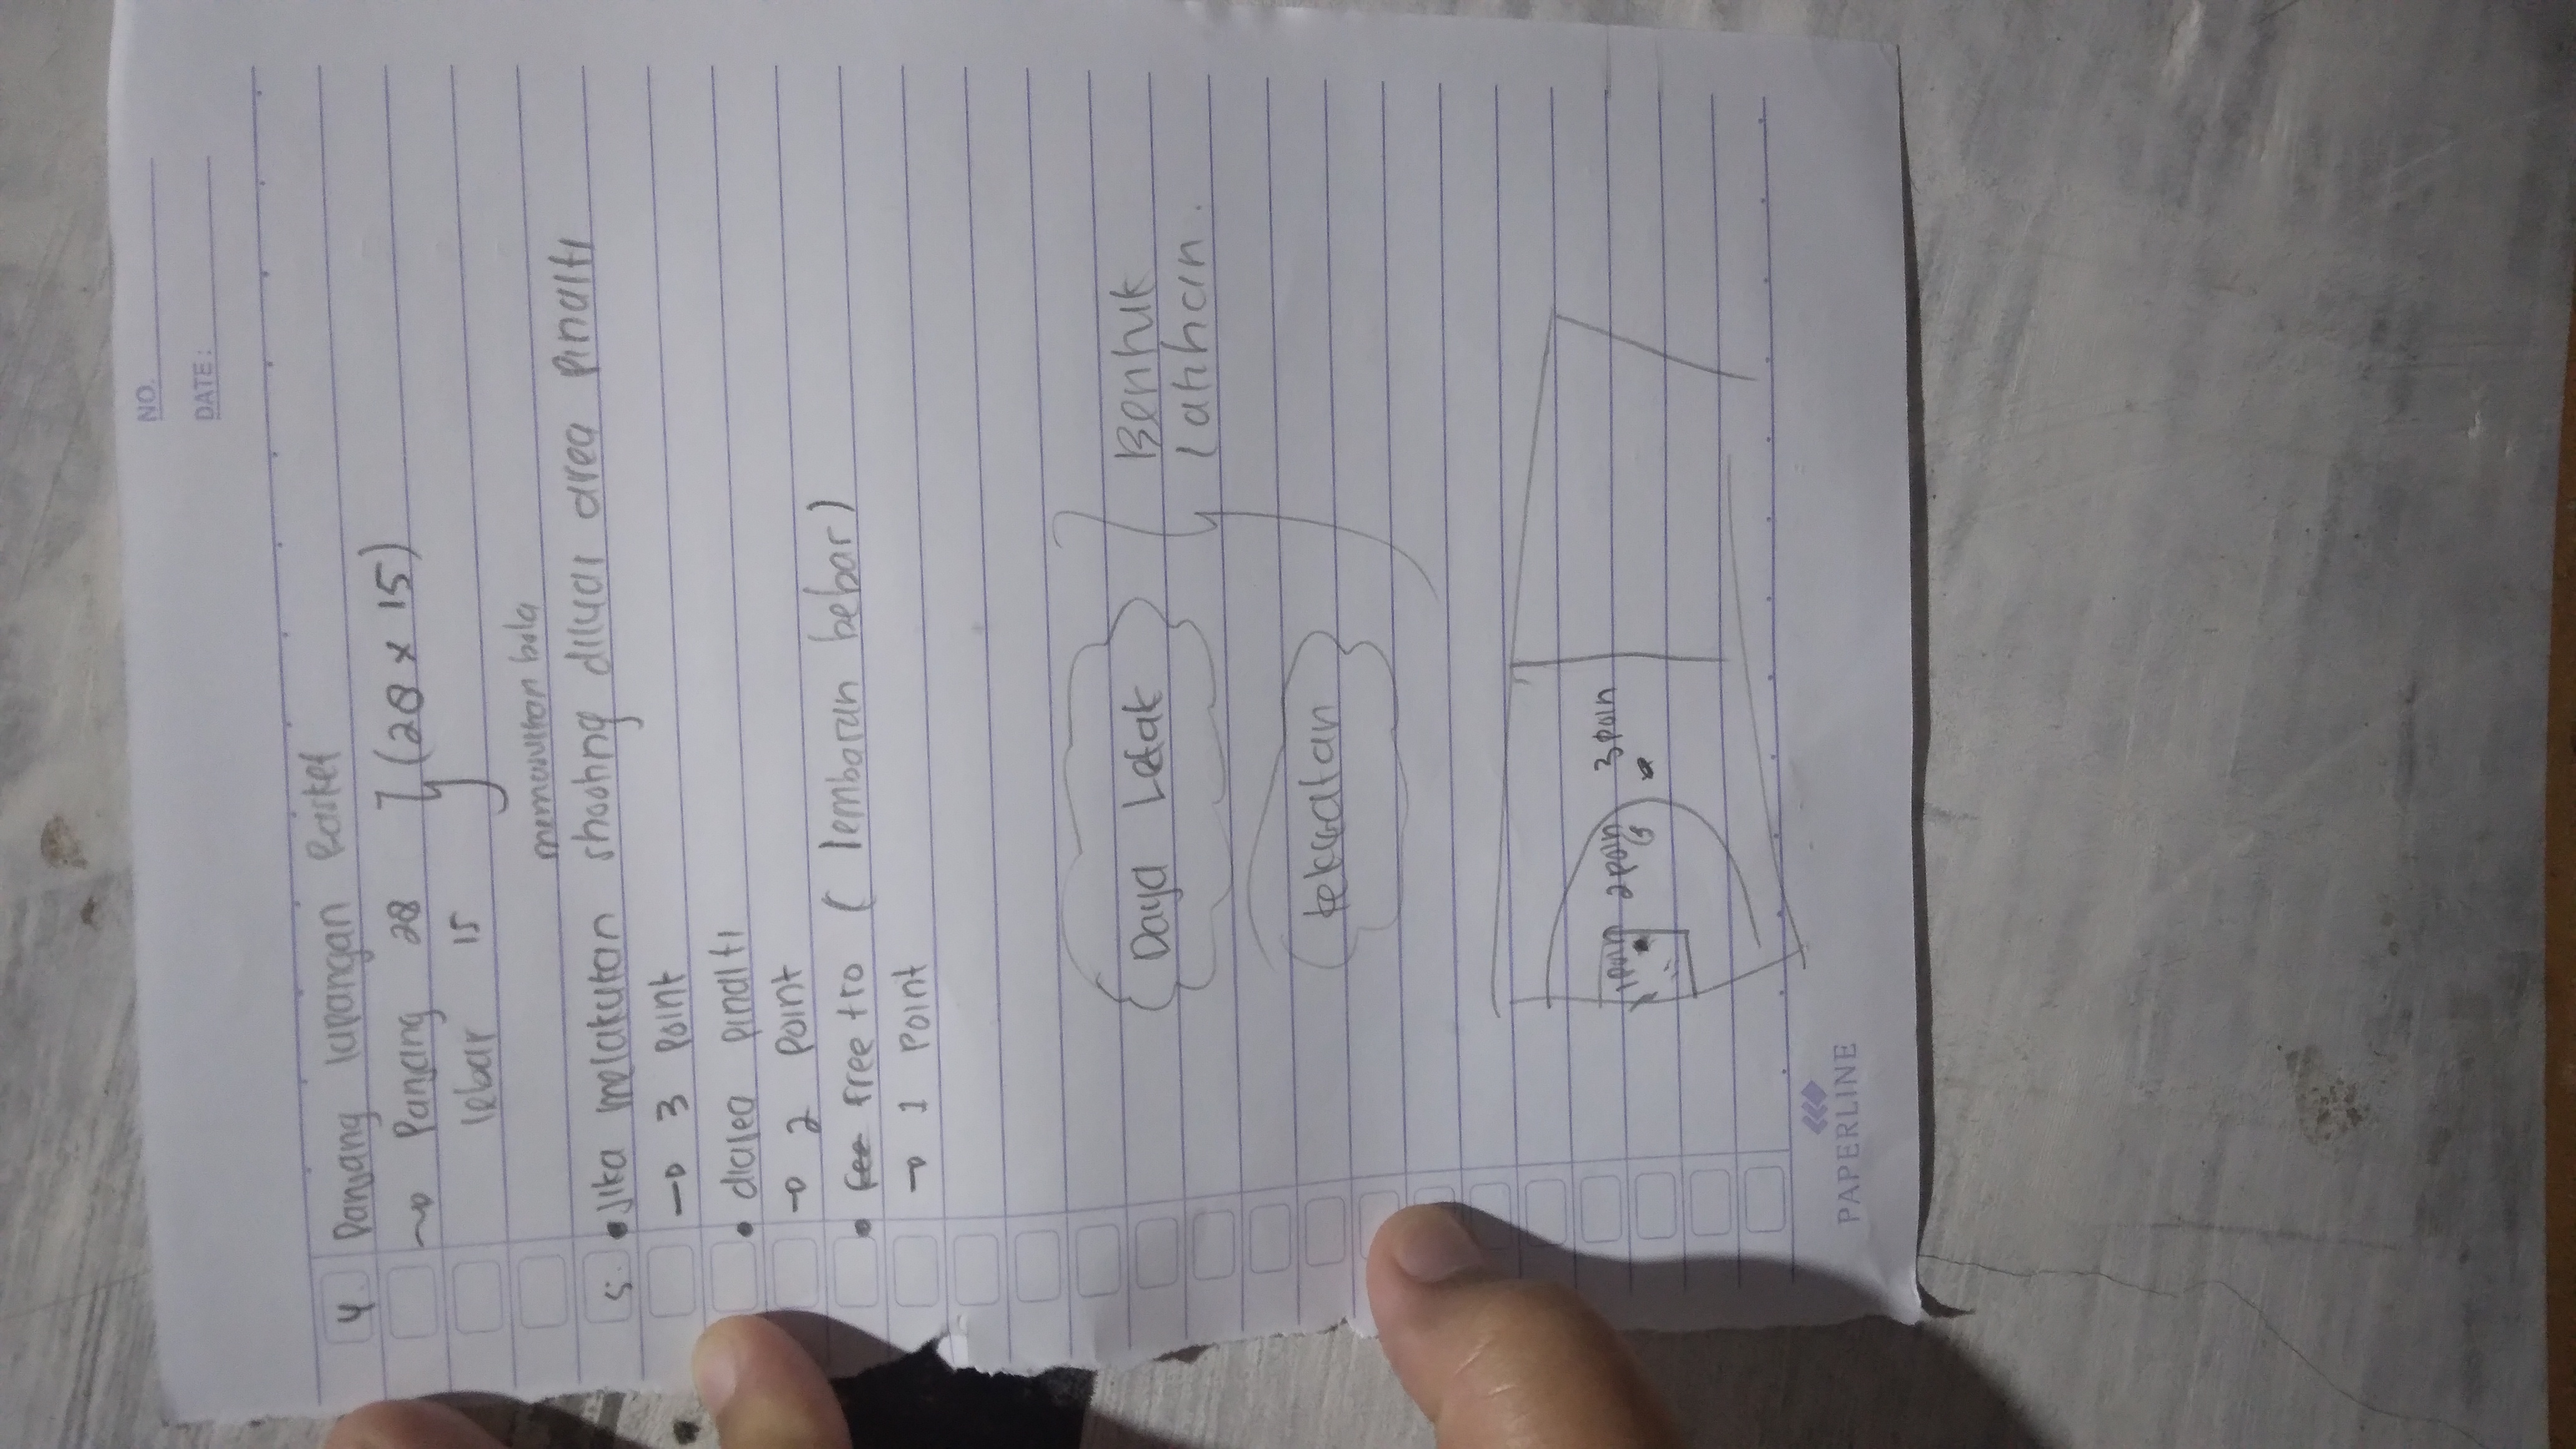 NO.
DATE :
4. Panjang lapangan Basket
Panjang 28 (28 x 15)
lebar 15
memasukkan bola
5. • Jika melakukan shooting diluar area pinalti
→ 3 Point
• diarea pinalti
→ 2 Point
• free tro ( lembaran bebar )
→ 1 Point
Daya Letak
Bentuk
Latihan.
kekuatan
1 poin 2 poin 3 poin
PAPERLINE